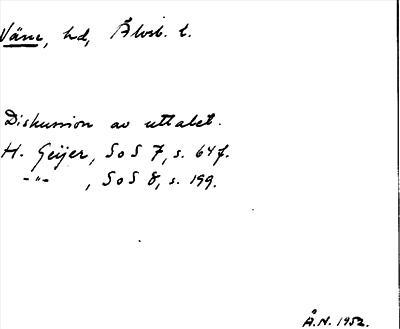 Väne, hd, Älvsb. l.
Diskussion av uttalet.
H. Geijer, SoS 7, s. 64f.
-"- , SoS 8, s. 199.
Å.N. 1952.